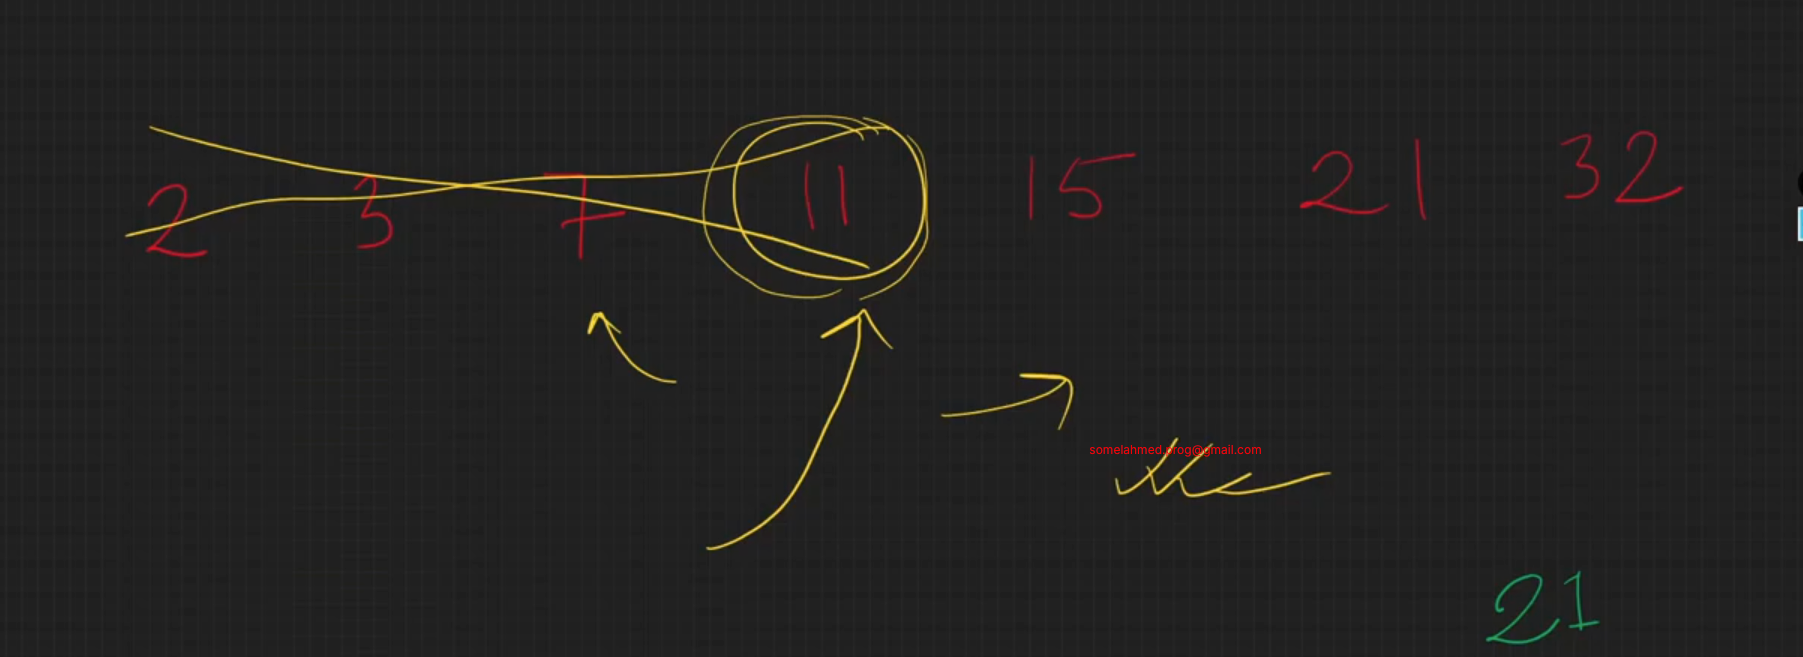 2 3 7 11 15 21 32
somelahmed.prog@gmail.com
21